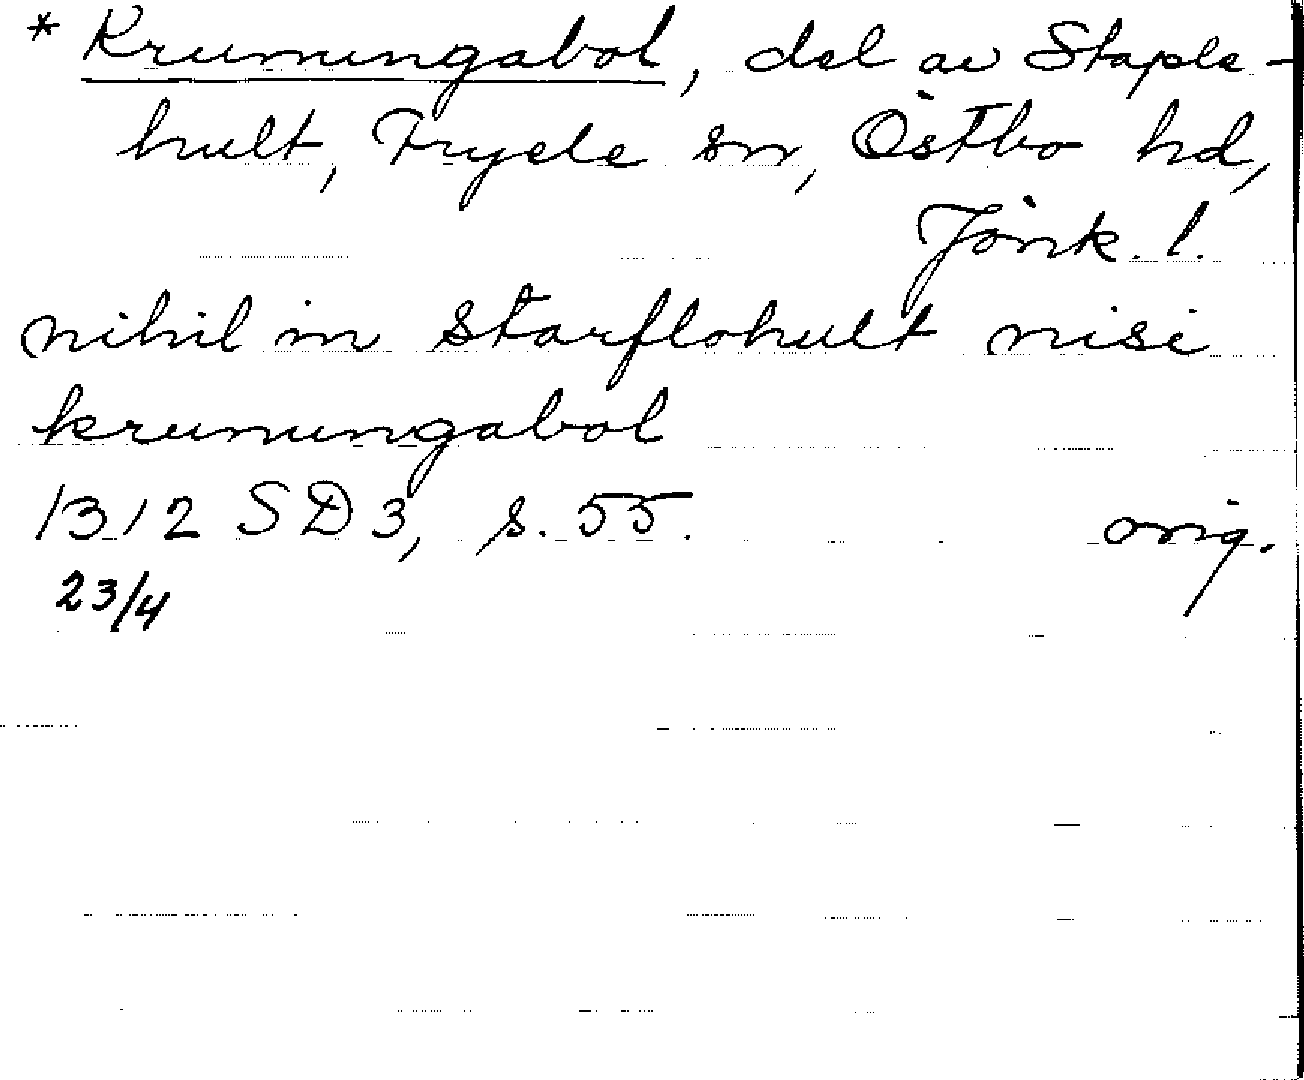 * Krumungabol, del av Staple-
hult, Fryele sn, Östbo hd,
Jönk. l.
nihil in Starflohult nisi
krumungabol
1312 SD3, s. 55. orig.
23/4